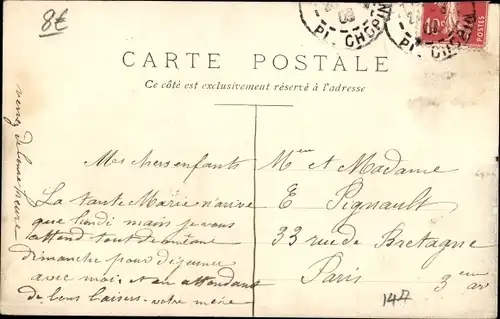 8€
08
PL. CHOPIN
PL. CHOPIN
10c
POSTES
CARTE POSTALE
Ce côté est exclusivement réservé à l'adresse
Mes chers enfants
La tante Marie n'arrive
que lundi mais je vous
attend tout de même
dimanche pour déjeuner
avec moi. En attendant
de bons baisers. votre mère
venez de bonne heure
Mme et Madame
E Pignault
33 rue de Bretagne
Paris 3eme ar
147